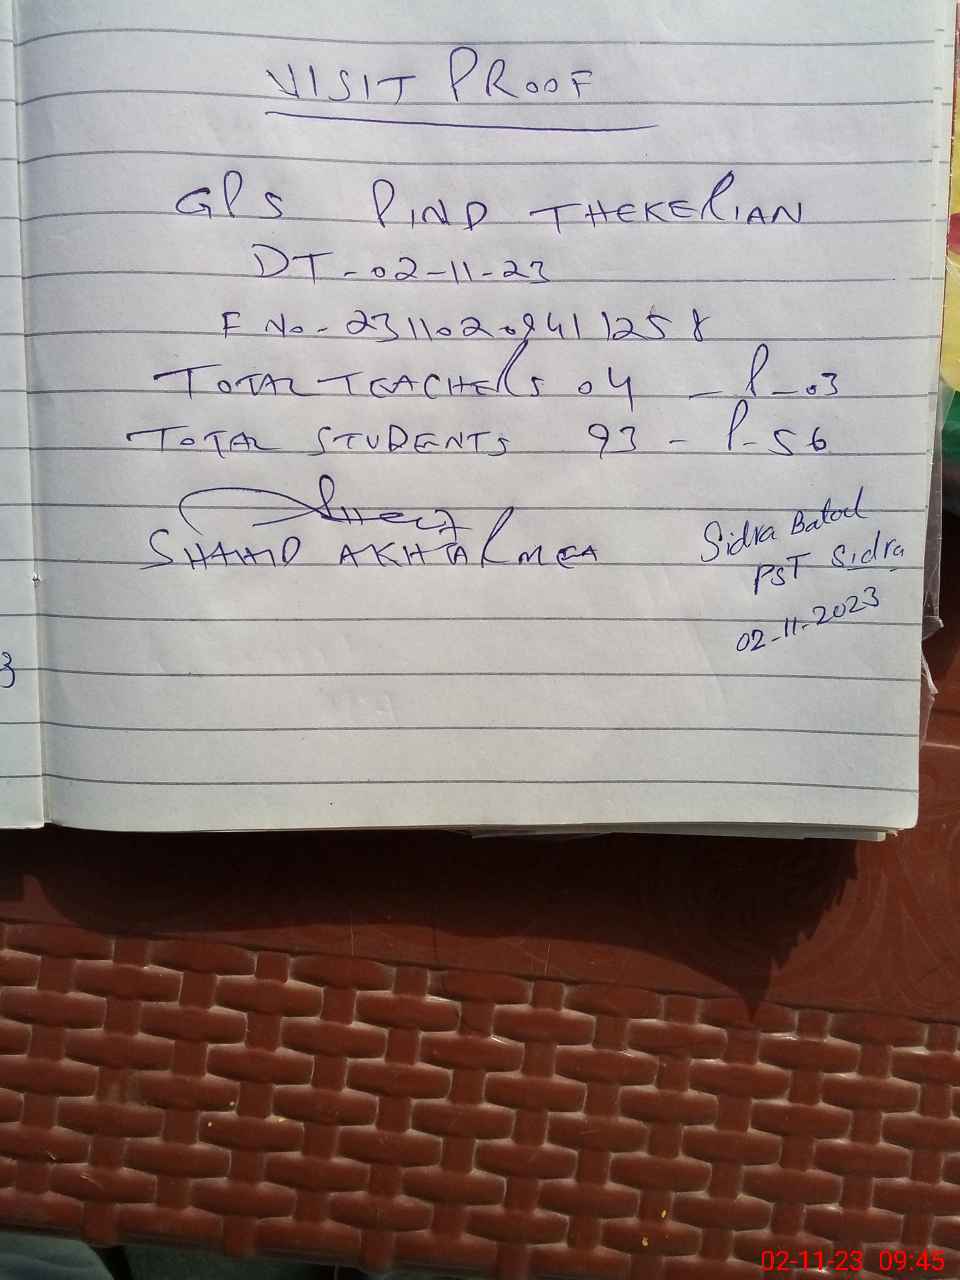 VISIT PROOF
GPS PIND THEKERIAN
DT-02-11-23
F No-23110209411258
TOTAL TEACHERS 04 - P-03
TOTAL STUDENTS 93 - P-56
SHAHID AKHTAR MEA
Sidra Batool
PST Sidra
02-11-2023
3
02-11-23 09:45